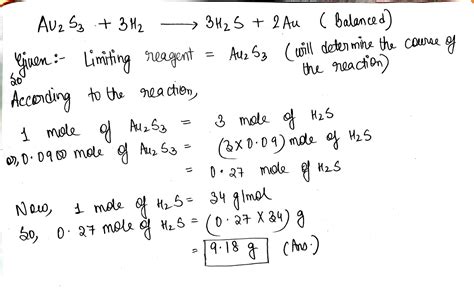 Au2S3 + 3H2 ⟶ 3H2S + 2Au (Balanced)
Given:- Limiting reagent = Au2S3 (will determine the course of the reaction)
So
According to the reaction,
1 mole of Au2S3 = 3 mole of H2S
or, 0.0900 mole of Au2S3 = (3x0.09) mole of H2S
= 0.27 mole of H2S
Now, 1 mole of H2S = 34 g/mol
So, 0.27 mole of H2S = (0.27 x 34) g
= 9.18 g (Ans.)